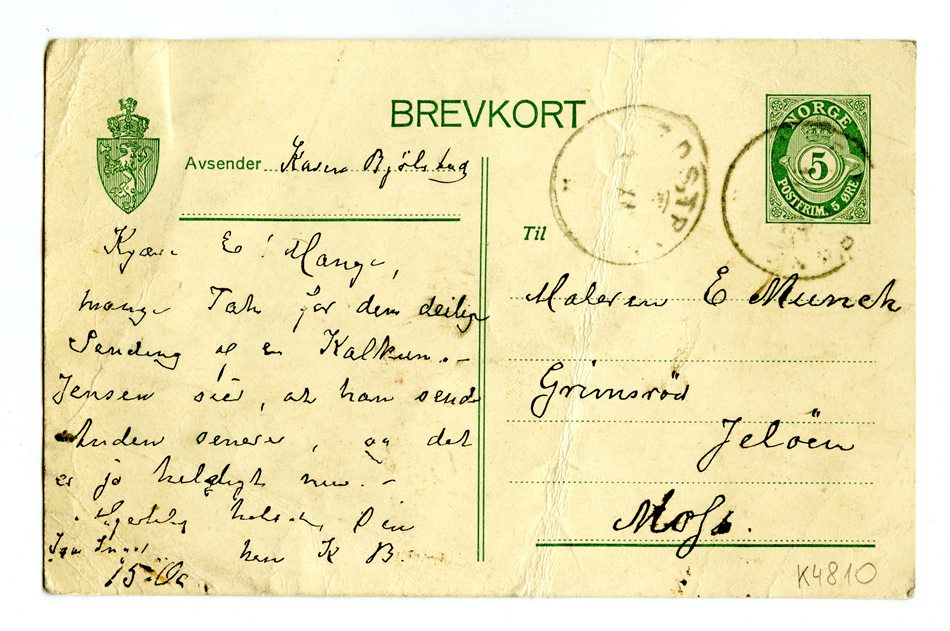 BREVKORT
Avsender Karen Bjølstad
NORGE
5
POSTFRIM. 5 ØRE
Kjære E! Mange,
mange Tak for den deilige
Sending af en Kalkun.-
Jensen sier, at han sende
Anden senere, og det
er jo heldigt nu.-
Hjertelig hilsen, Din
hen K B.
15-
Til
Maleren E Munch
Grimsrød
Jeløen
Moss.
K4810